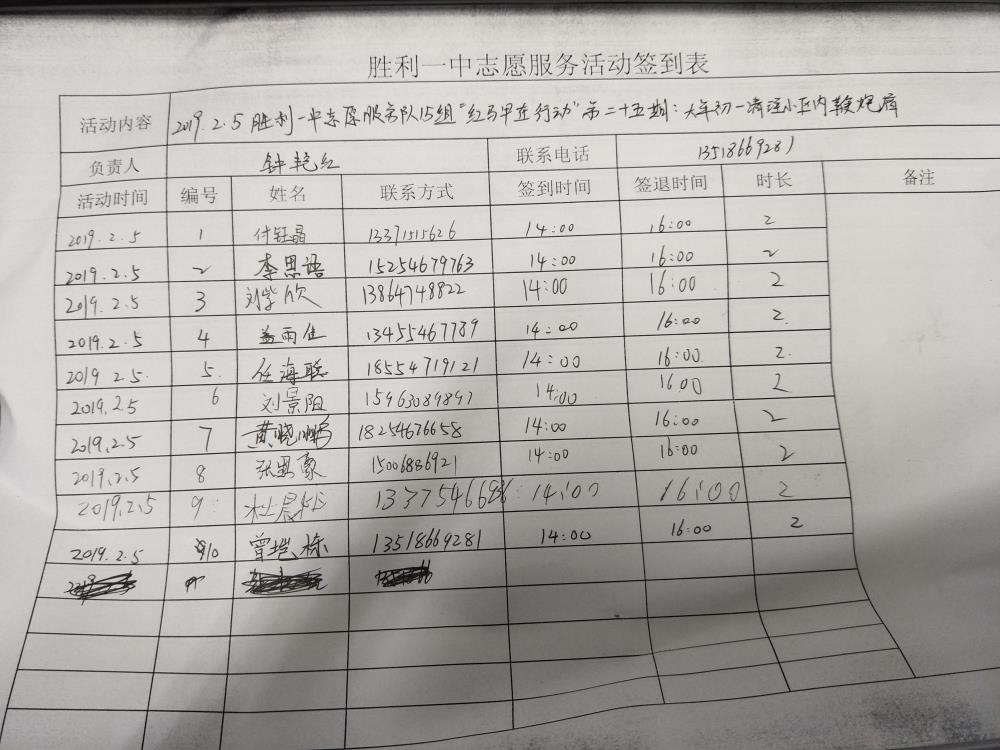 胜利一中志愿服务活动签到表
活动内容 2019.2.5 胜利一中志愿服务队15组“红马甲在行动”第二十五期:大年初一清理小区内鞭炮屑
负责人 钟艳红 联系电话 13518669281
活动时间 编号 姓名 联系方式 签到时间 签退时间 时长 备注
2019.2.5 1 付钰晶 13371515626 14:00 16:00 2
2019.2.5 2 李思语 15254679763 14:00 16:00 2
2019.2.5 3 刘紫欣 13864748822 14:00 16:00 2
2019.2.5 4 盖雨佳 13455467789 14:00 16:00 2.
2019.2.5. 5. 任海联 18554719121 14:00 16:00. 2.
2019.2.5 6 刘景阳 15963089897 14:00 16:00 2
2019.2.5 7 黄晓鹏 18254676658 14:00 16:00 2
2019.2.5 8 张思豪 15006886921 14:00 16:00 2
2019.2.5 9 杜晨 14:00 16:00 2
2019.2.5 10 曾垲栋 13518669281 14:00 16:00 2